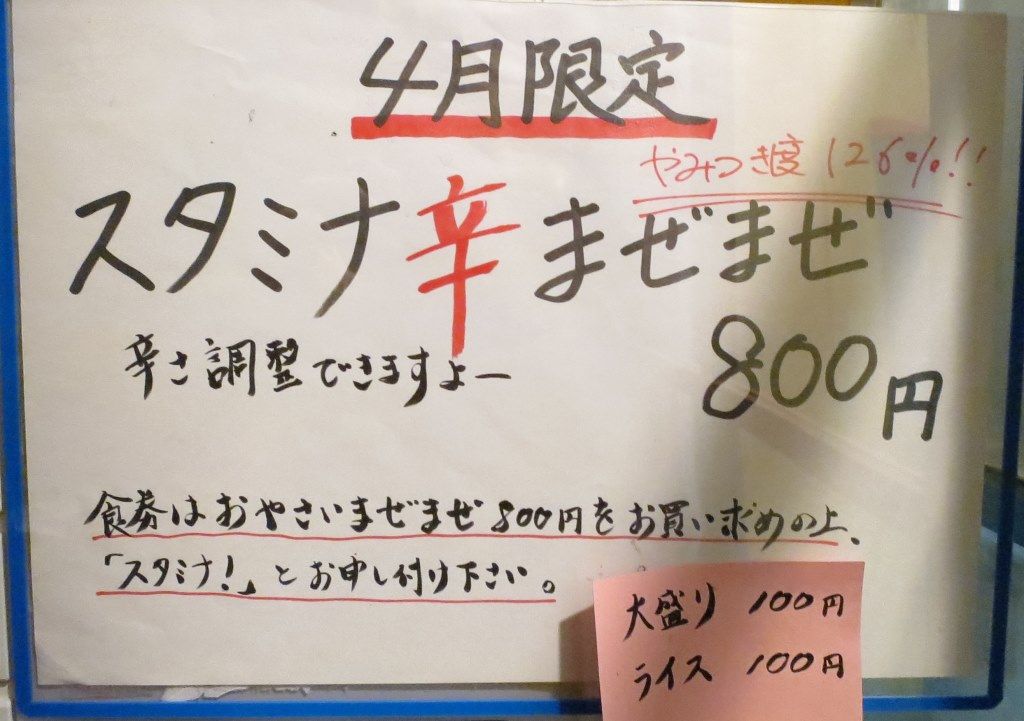 4月限定
やみつき度126%!!
スタミナ辛まぜまぜ
辛さ調整できますよー
800円
食券はおやさいまぜまぜ800円をお買い求めの上、
「スタミナ!」とお申し付け下さい。
大盛り 100円
ライス 100円